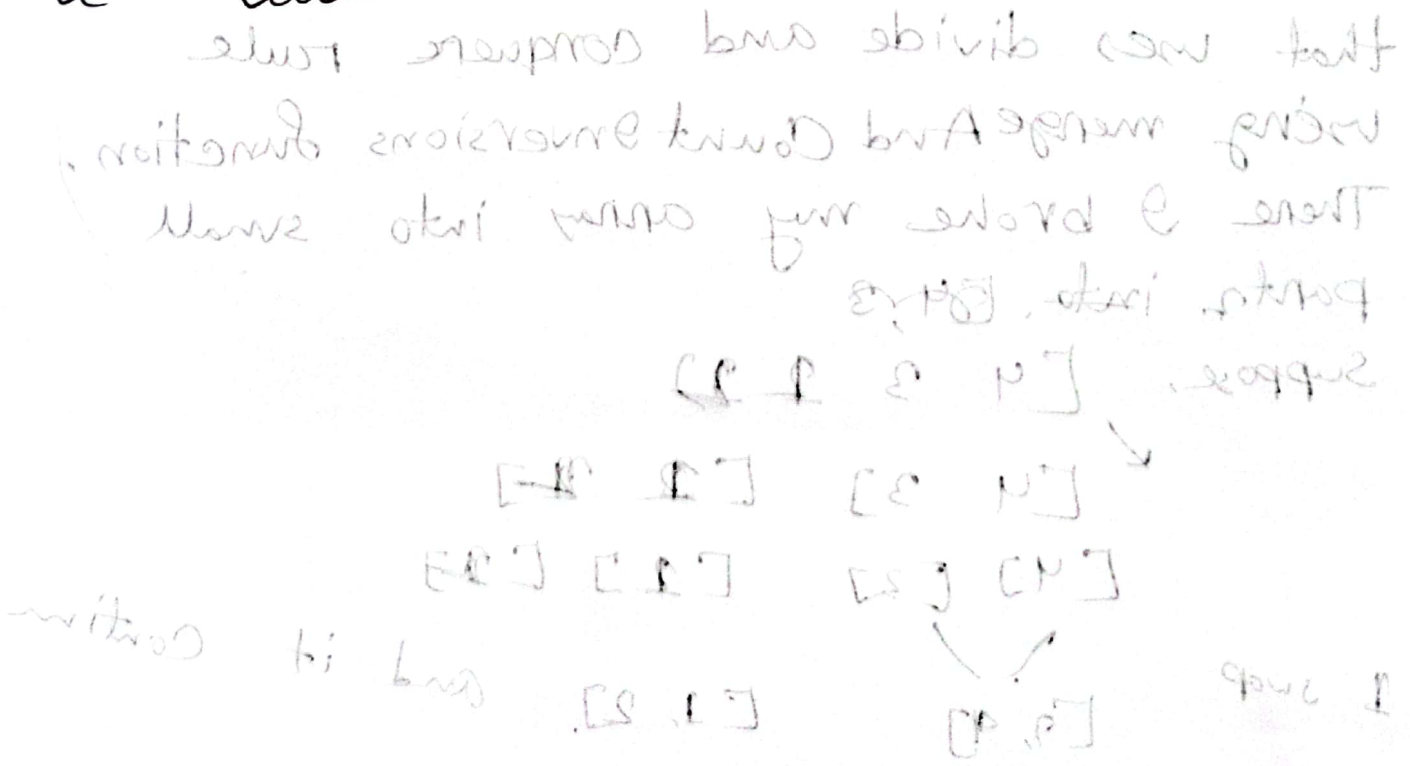 that uses divide and conquere rule
using mergeAndCountInversions function.
There I broke my array into small
parts. into.
suppose, [4 3 1 2]
[4 3] [1 2]
[4] [3] [1] [2]
1 swap [3, 4] [1, 2]. and it continu